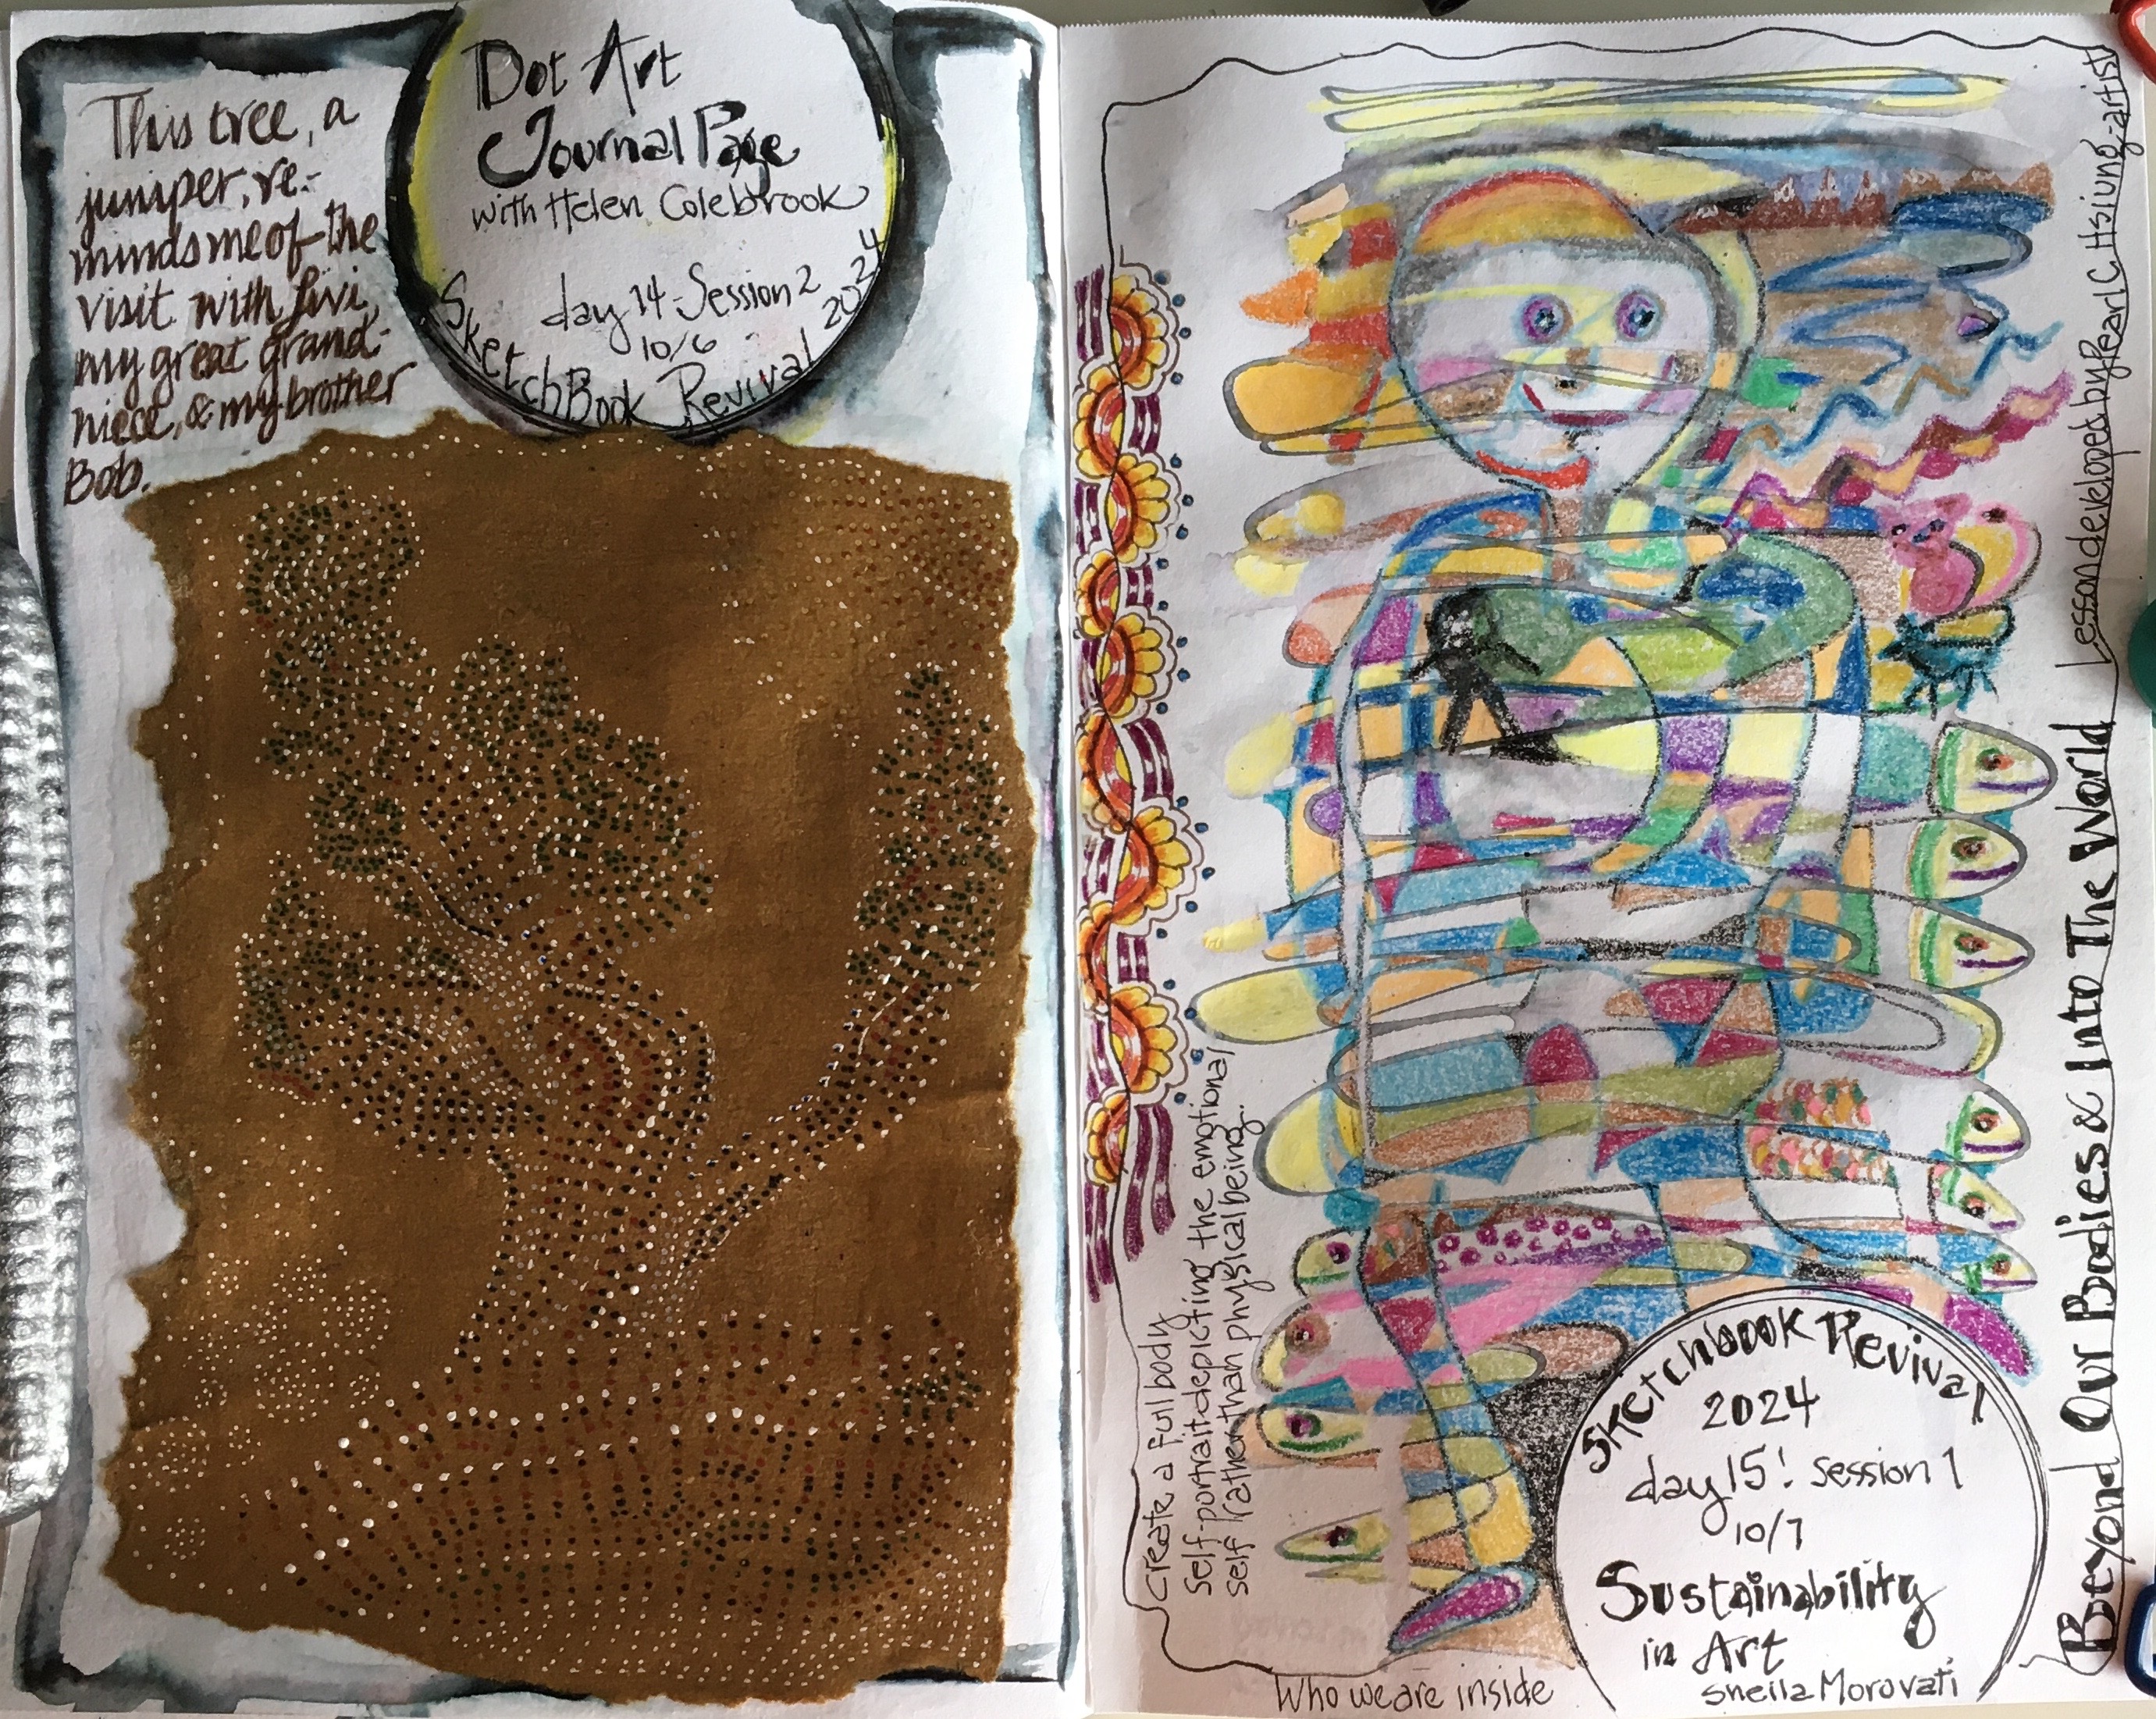 Dot Art
Journal Page
with Helen Colebrook
day 14 - Session 2
10/6
SketchBook Revival 2024
This tree, a
juniper, re-
minds me of the
visit with Livi,
my great grand-
niece, & my brother
Bob.
Lesson developed by Pearl C. Hsiung-artist
Beyond Our Bodies & Into The World
Create a full body
self-portrait depicting the emotional
self rather than physical being.
Sketchbook Revival
2024
day 15! session 1
10/7
Sustainability
in Art
Sheila Morovati
Who we are inside